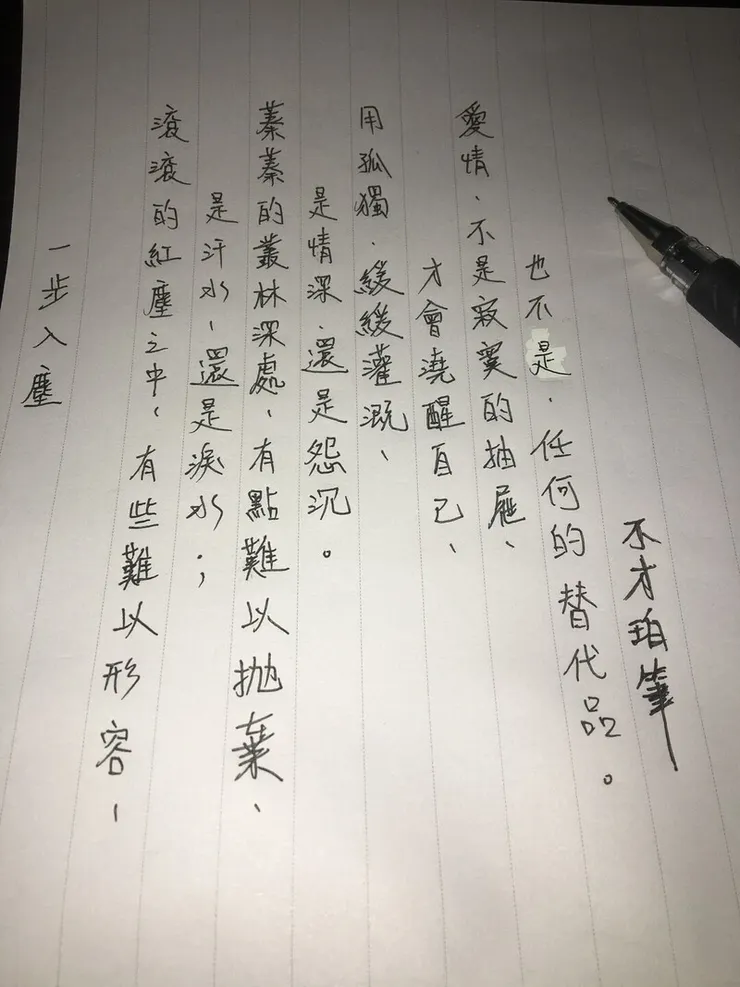 一步入塵
滾滾的紅塵之中、有些難以形容、
是汗水、還是淚水；
蓁蓁的叢林深處、有點難以拋棄、
是情深、還是怨沉。
用孤獨、緩緩灌溉、
才會澆醒自己、
愛情、不是寂寞的抽屜、
也不是、任何的替代品。
不才珀筆